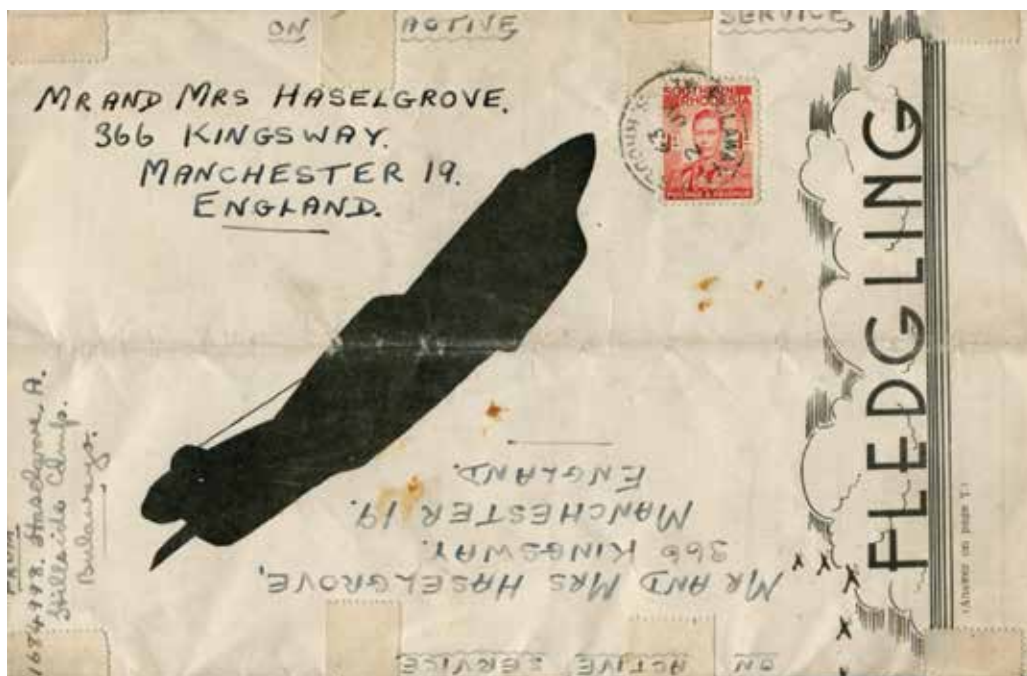 ON ACTIVE SERVICE
MR AND MRS HASELGROVE.
366 KINGSWAY.
MANCHESTER 19.
ENGLAND.
SOUTHERN
RHODESIA
POSTAGE & REVENUE
FLEDGLING
(Answer on page 2.)
Haselgrove, A.
Hillside Camp.
Bulawayo.
MR AND MRS HASELGROVE,
366 KINGSWAY.
MANCHESTER 19.
ENGLAND.
ON ACTIVE SERVICE